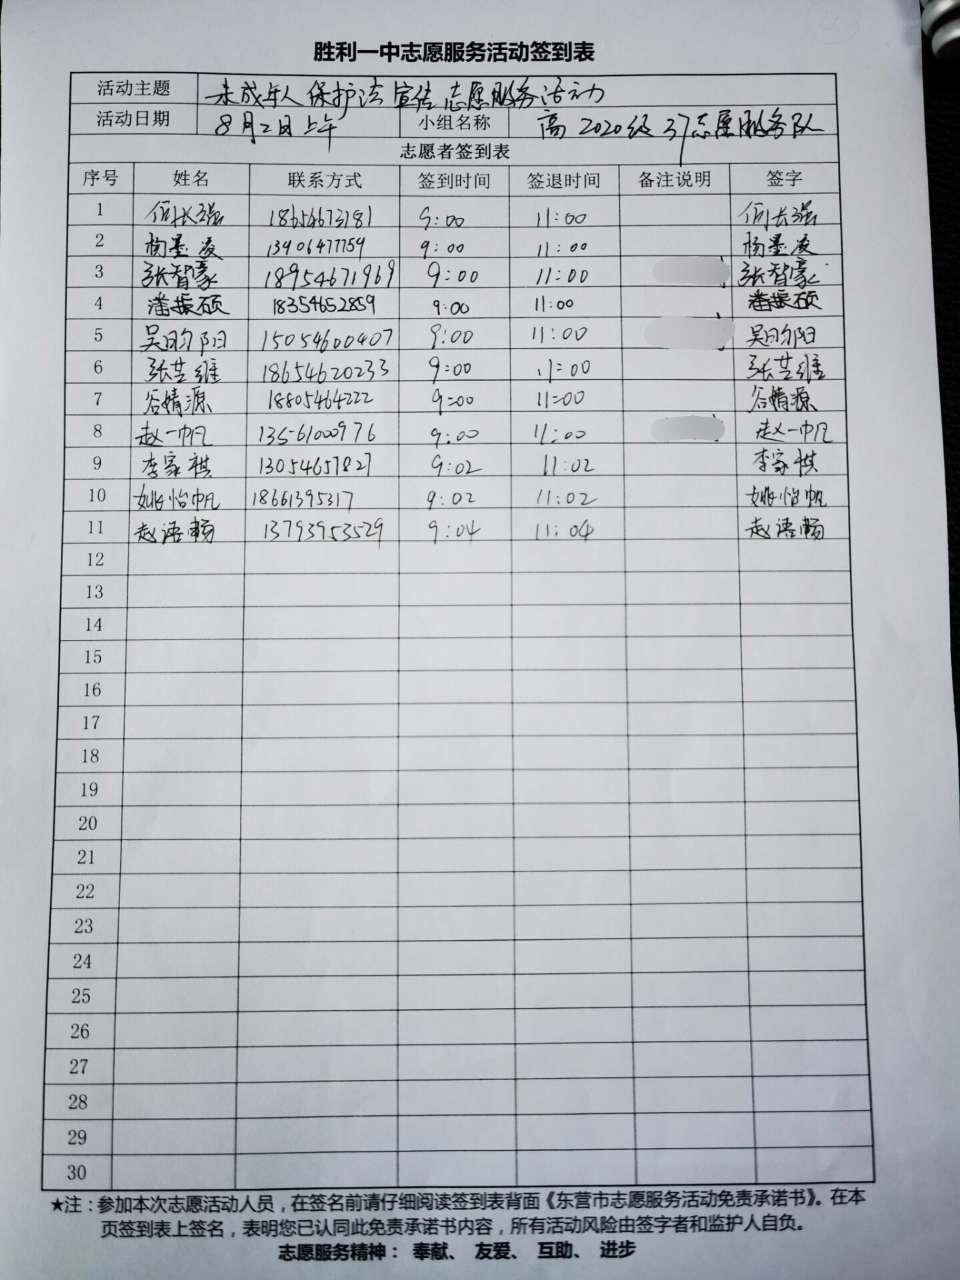 胜利一中志愿服务活动签到表
活动主题 未成年人保护法宣传志愿服务活动
活动日期 8月2日上午 小组名称 高2020级37志愿服务队
志愿者签到表
序号 姓名 联系方式 签到时间 签退时间 备注说明 签字
1 何长强 18654673181 9:00 11:00 何长强
2 杨墨凌 13406477759 9:00 11:00 杨墨凌
3 张智豪 18954671969 9:00 11:00 张智豪
4 潘振硕 18354652859 9:00 11:00 潘振硕
5 吴昀阳 15054600407 9:00 11:00 吴昀阳
6 张芸维 18654620233 9:00 11:00 张芸维
7 谷婧源 18805464222 9:00 11:00 谷婧源
8 赵一帆 13561000976 9:00 11:00 赵一帆
9 李家祺 13054657827 9:02 11:02 李家祺
10 姚怡帆 18661395317 9:02 11:02 姚怡帆
11 赵语畅 13793953529 9:04 11:04 赵语畅
12
13
14
15
16
17
18
19
20
21
22
23
24
25
26
27
28
29
30
★注：参加本次志愿活动人员，在签名前请仔细阅读签到表背面《东营市志愿服务活动免责承诺书》。在本
页签到表上签名，表明您已认同此免责承诺书内容，所有活动风险由签字者和监护人自负。
志愿服务精神： 奉献、 友爱、 互助、 进步